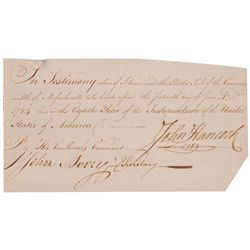 In Testimony whereof I have caused the Public Seal of the Common-
wealth of Massachusetts to be hereto affixed this fifteenth day of June A.D.
1784 and in the Eighth Year of the Independence of the United
States of America
John Hancock
By His Excellency's Command
John Avery jun Secretary